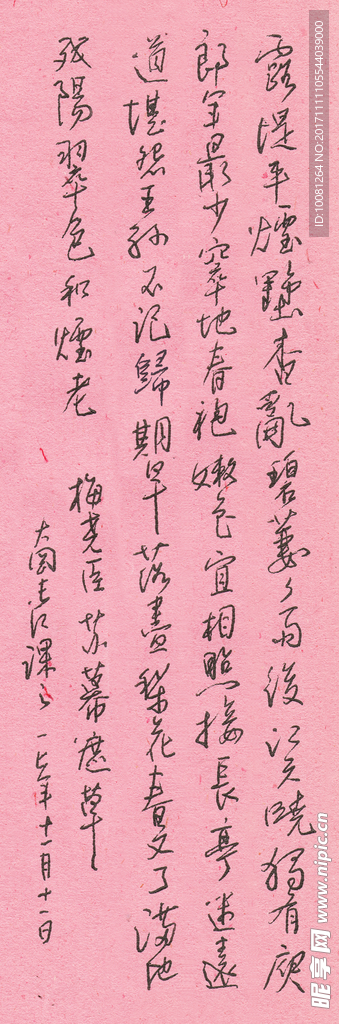 露堤平烟墅杳乱碧萋々雨後江天曉獨有庾
郎年最少窣地春袍嫩色宜相照接長亭迷遠
道堪怨王孫不記歸期早落盡梨花春又了滿地
殘陽翠色和煙老
梅堯臣蘇幕遮草
課
十一月十一日
ID:10081264 NO:20171111105544039000
昵享网 www.nipic.cn